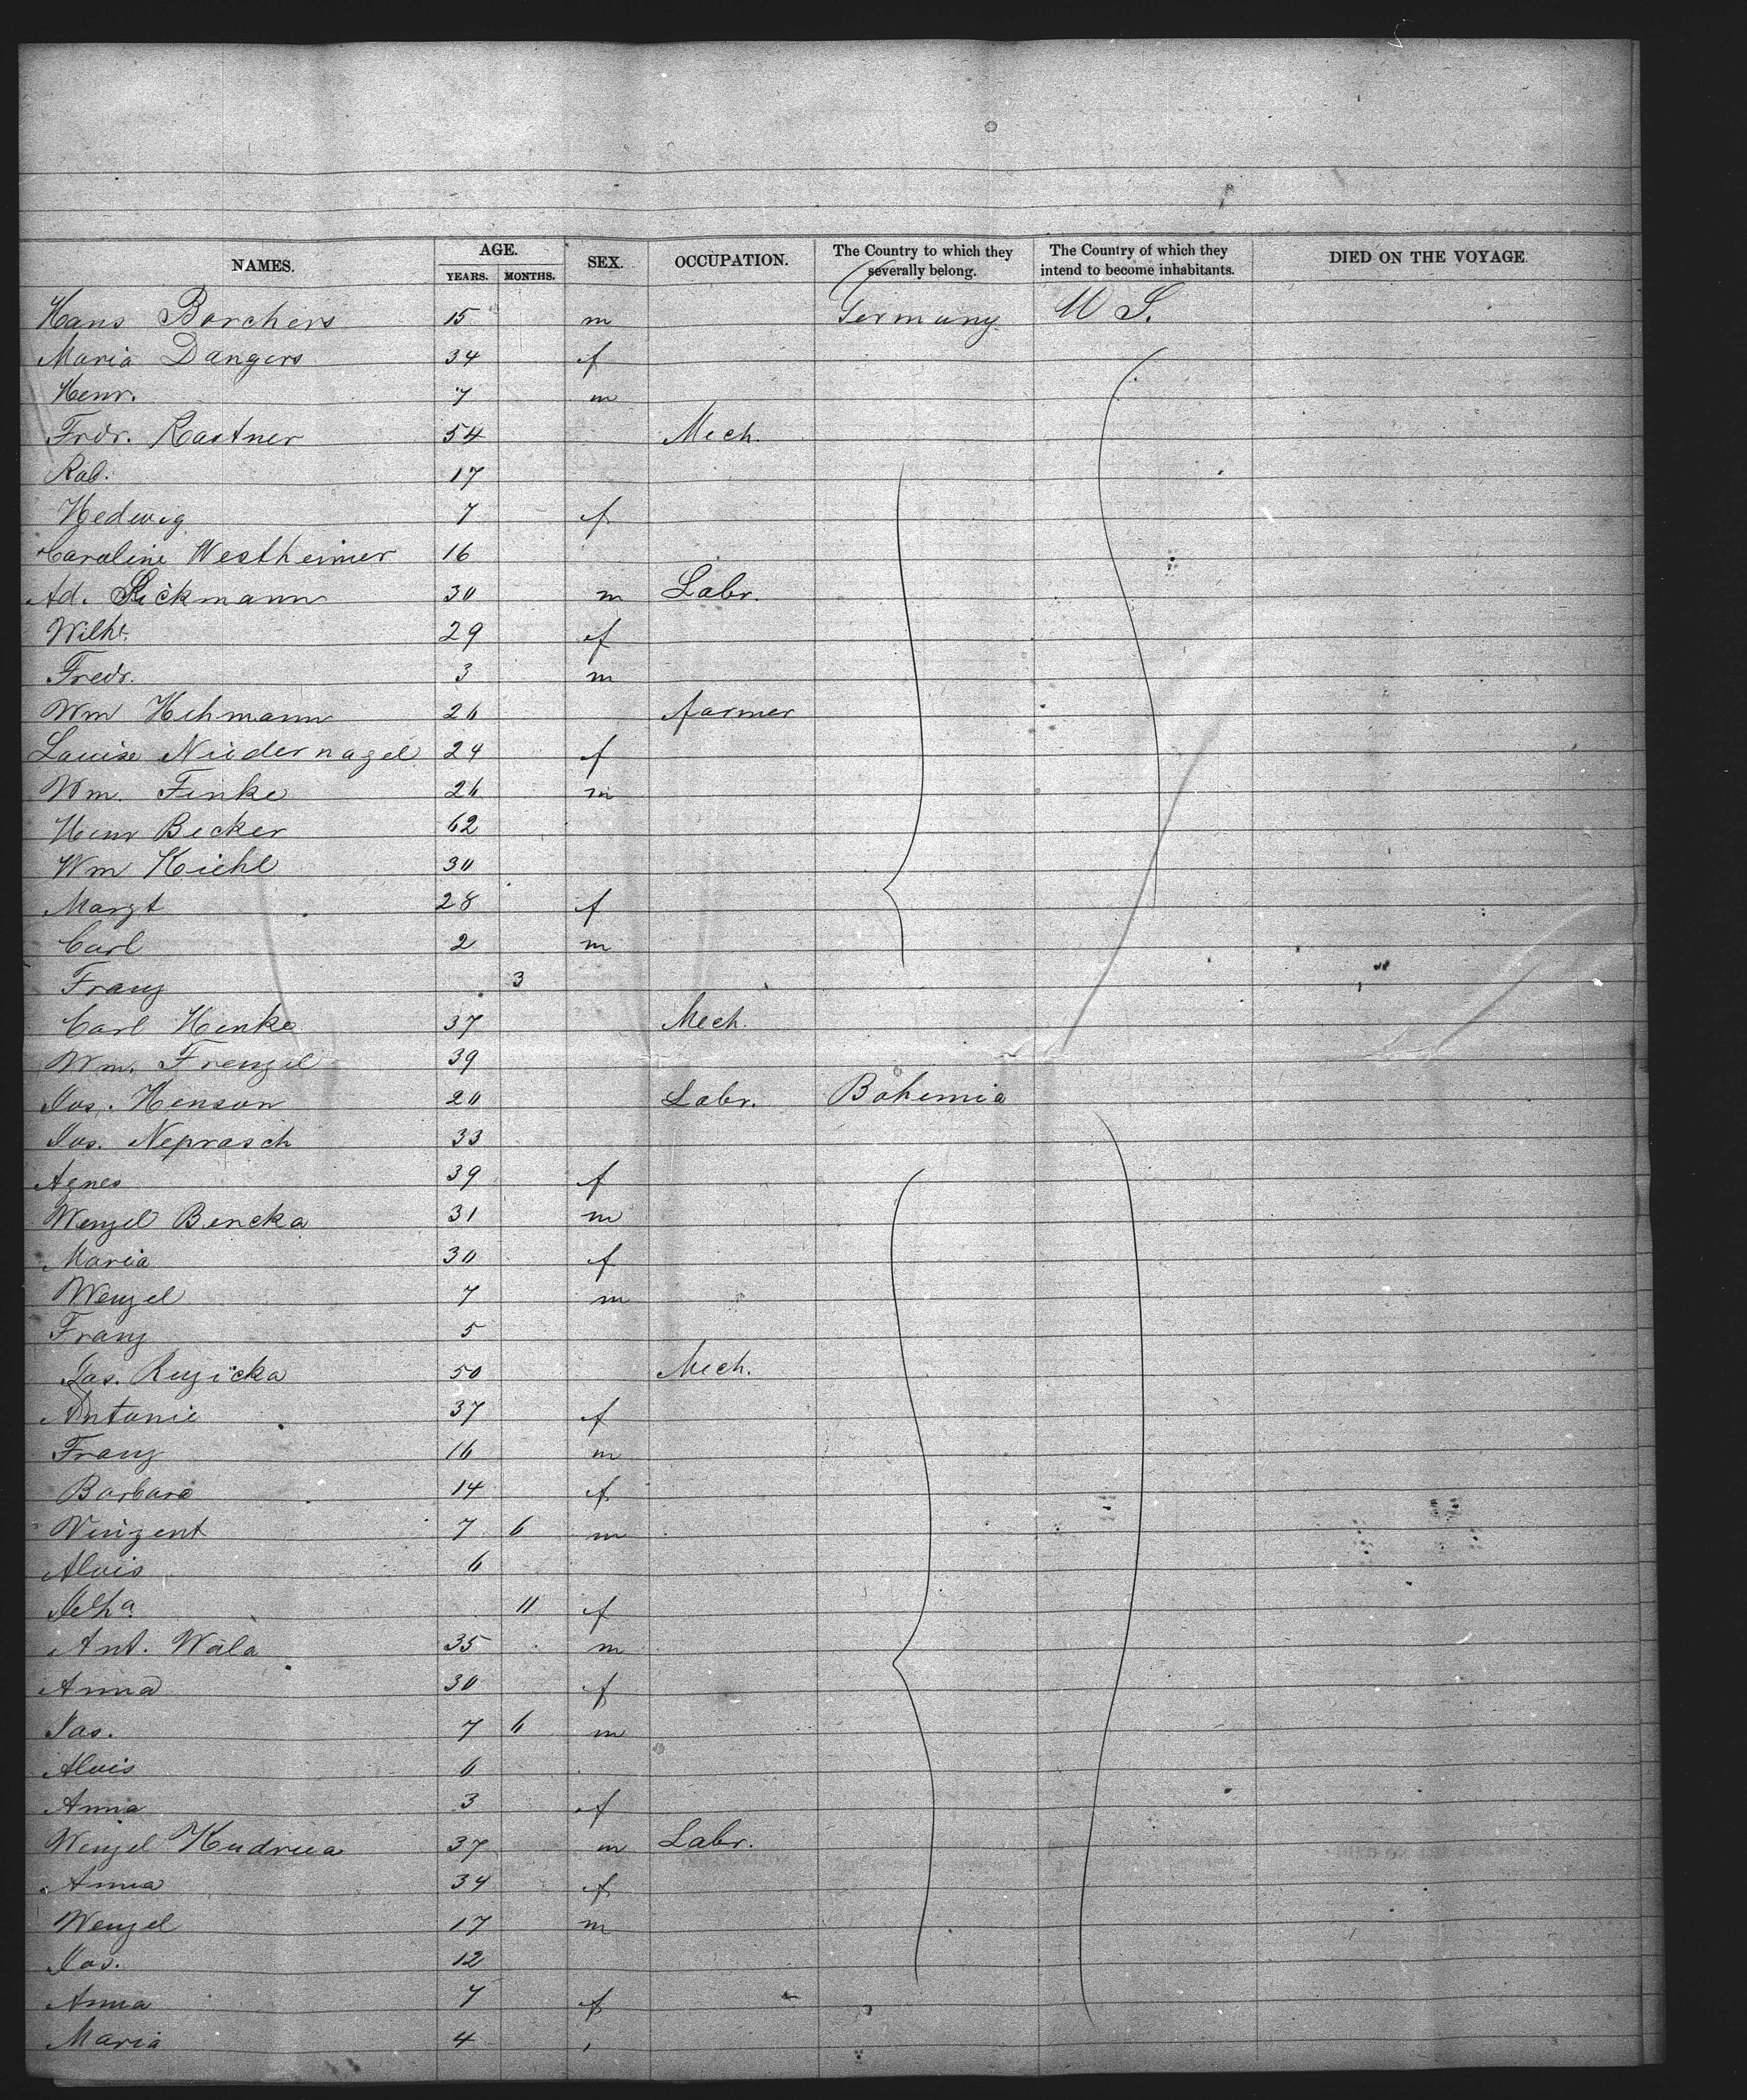 NAMES. AGE. YEARS. MONTHS. SEX. OCCUPATION. The Country to which they severally belong. The Country of which they intend to become inhabitants. DIED ON THE VOYAGE
Hans Borchers 15 m Germany U S.
Maria Dangers 34 f
Henr. 7 m
Frdr. Kastner 54 Mech.
Rob. 17
Hedwig 7 f
Caroline Westheimer 16
Ad. Rickmann 30 m Labr.
Wilhe. 29 f
Fredr. 3 m
Wm Hehmann 26 farmer
Louise Niedernagel 24 f
Wm. Finke 26 m
Henr Becker 62
Wm Kiehl 30
Margt 28 f
Carl 2 m
Franz 3
Carl Henke 37 Mech.
Wm. Frenzel 39
Jos. Henson 20 Labr. Bohemia
Jos. Neprasch 33
Agnes 39 f
Wenzel Bencka 31 m
Maria 30 f
Wenzel 7 m
Franz 5
Jos. Ruzicka 50 Mech.
Antonie 37 f
Franz 16 m
Barbara 14 f
Vinzent 7 6 m
Alois 6
11 f
Ant. Wala 35 m
Anna 30 f
Jos. 7 6 m
Alois 6
Anna 3 f
Wenzel 37 m Labr.
Anna 34 f
Wenzel 17 m
Jos. 12
Anna 7 f
Maria 4